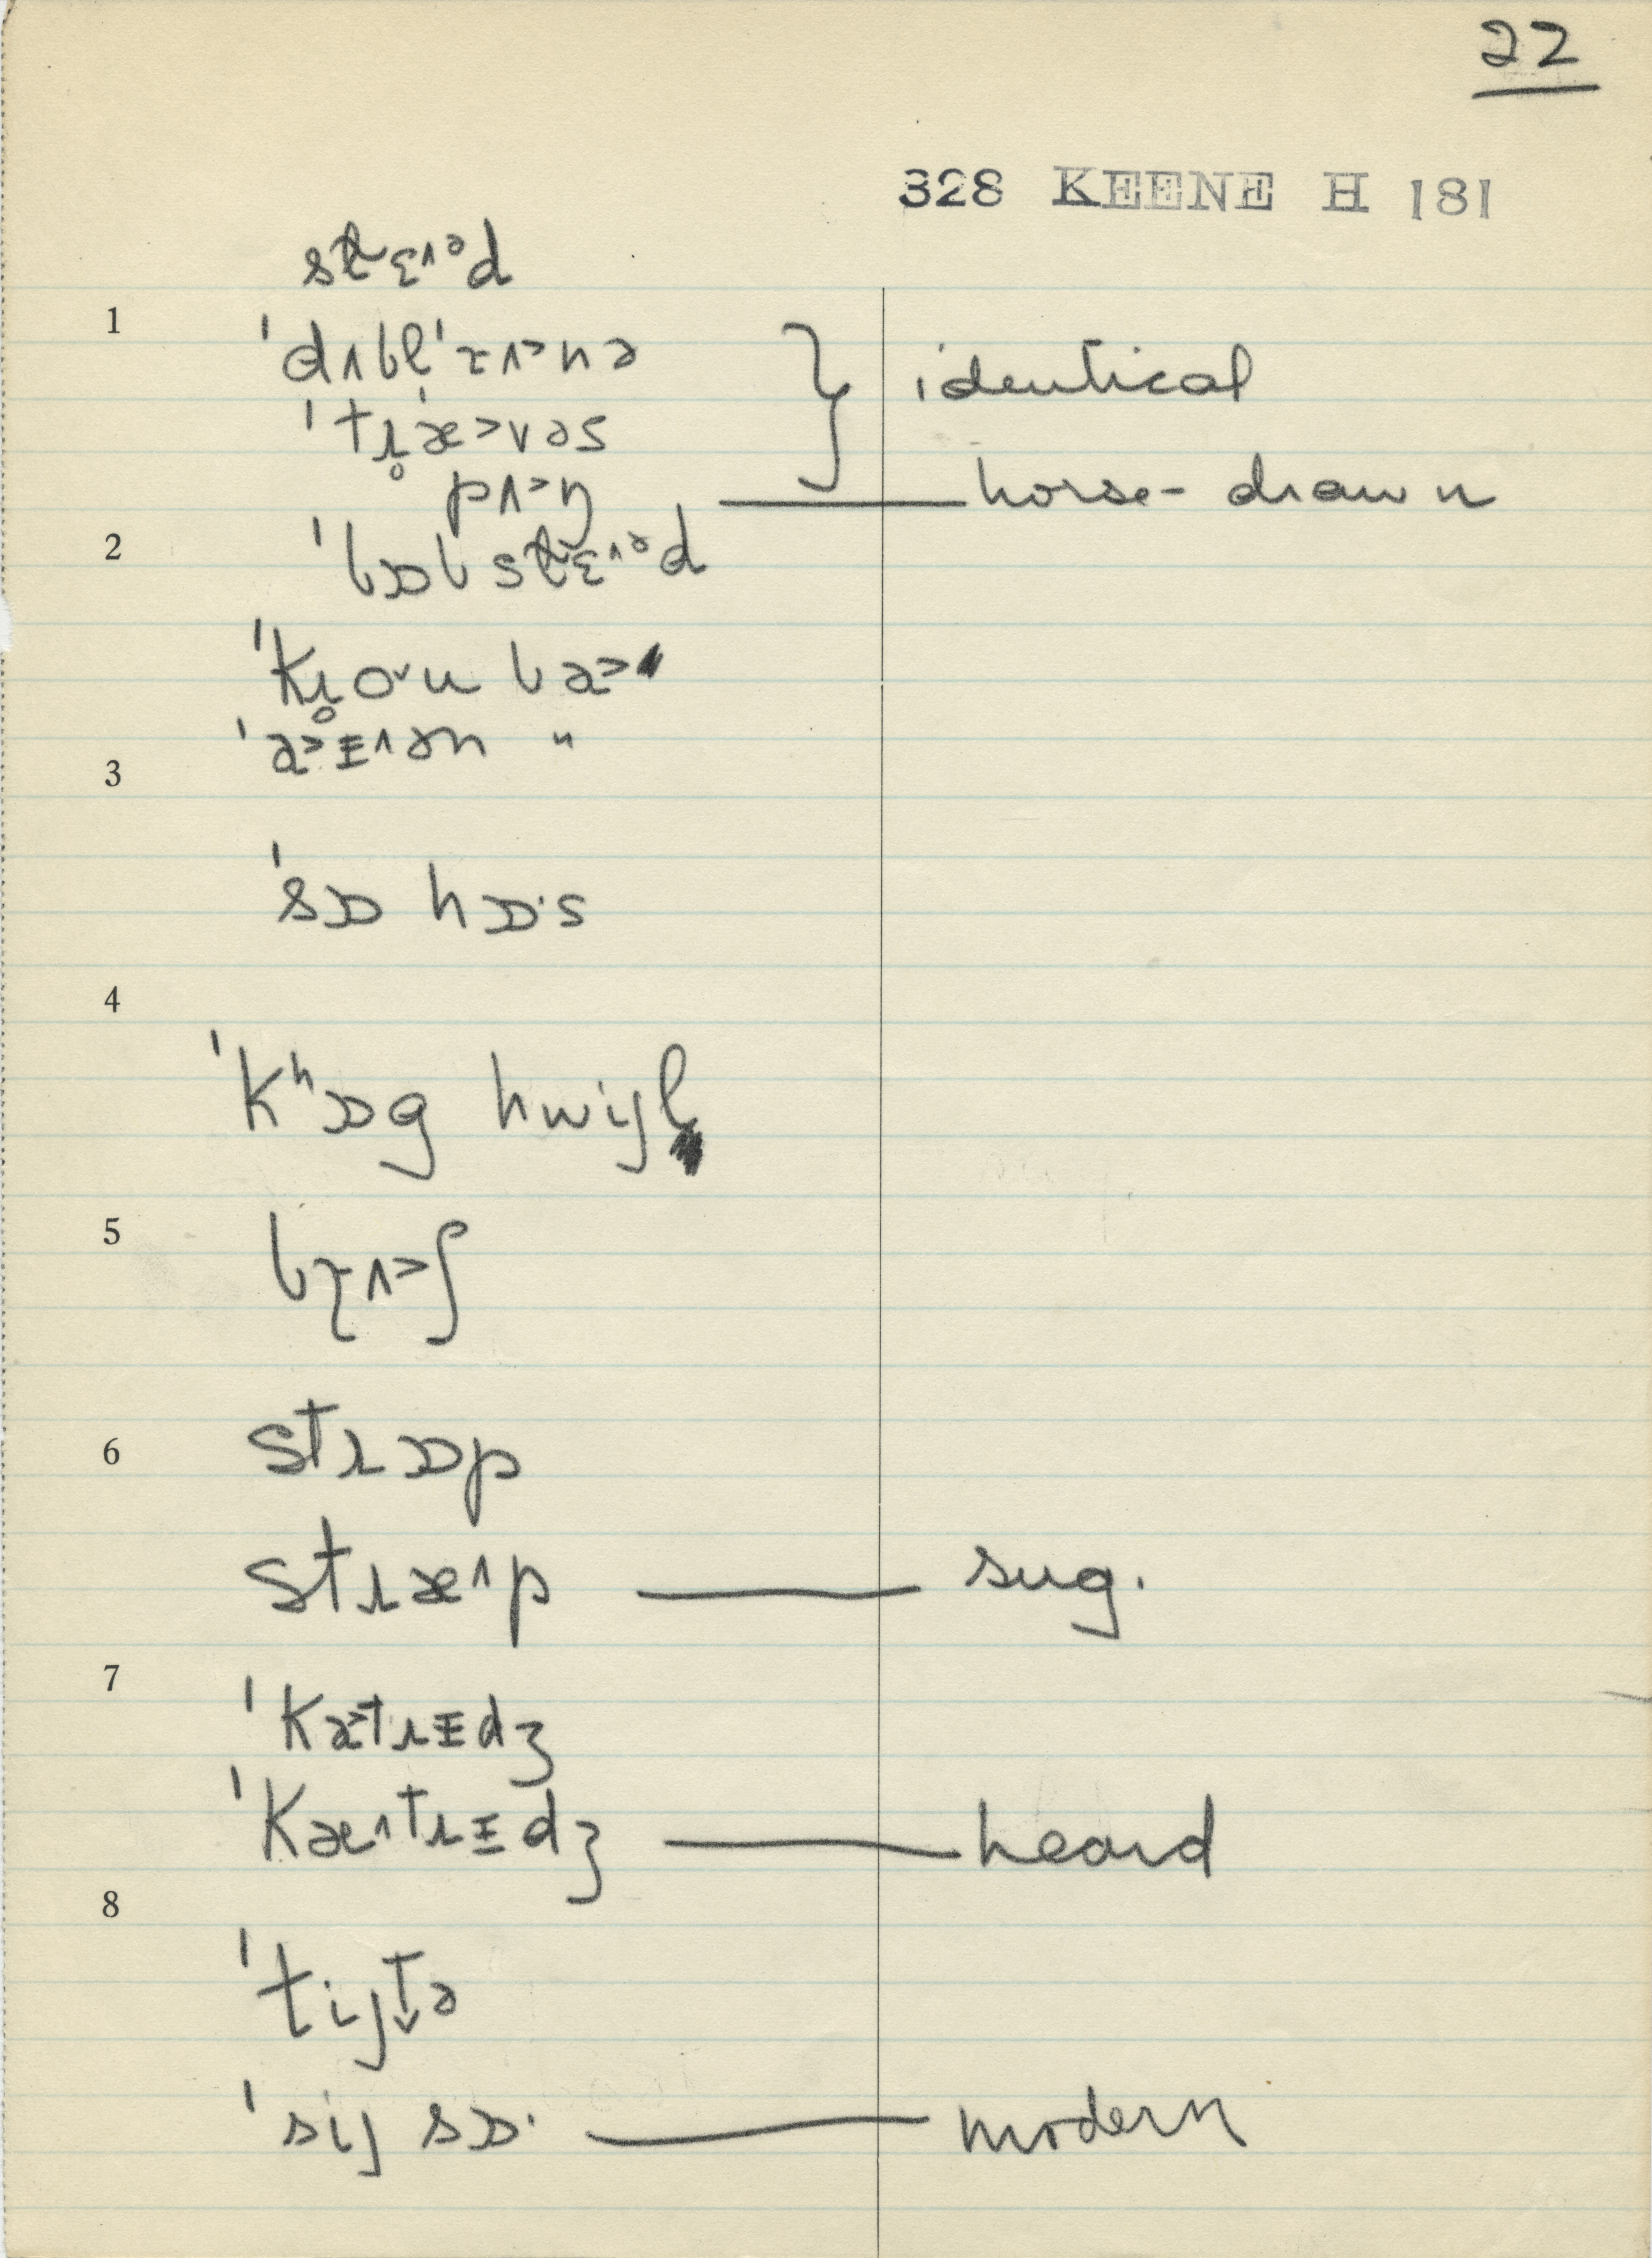 22
328 KEENE H 181
stɛ˄ᵊd
1
ˈdʌblˈɪ˄˃nə } identical
ˈtɹ̥ˈæ˃vəs
pʌ˃ŋ — horse-drawn
2
ˈbɒb stɛ˄ᵊd
ˈkɹ̥o˅u ba˃
ˈa˃ɪ˄ən "
3
ˈsɒ hɒ·s
4
ˈkʰɒg hwijl
5
bɪ˄˃ʃ
6
stɹɒp
stɹæ˄p — sug.
7
ˈka˃tɹɪdʒ
ˈkæ˄tɹɪdʒ — heard
8
ˈtijtə
ˈsij sɒ· — modern